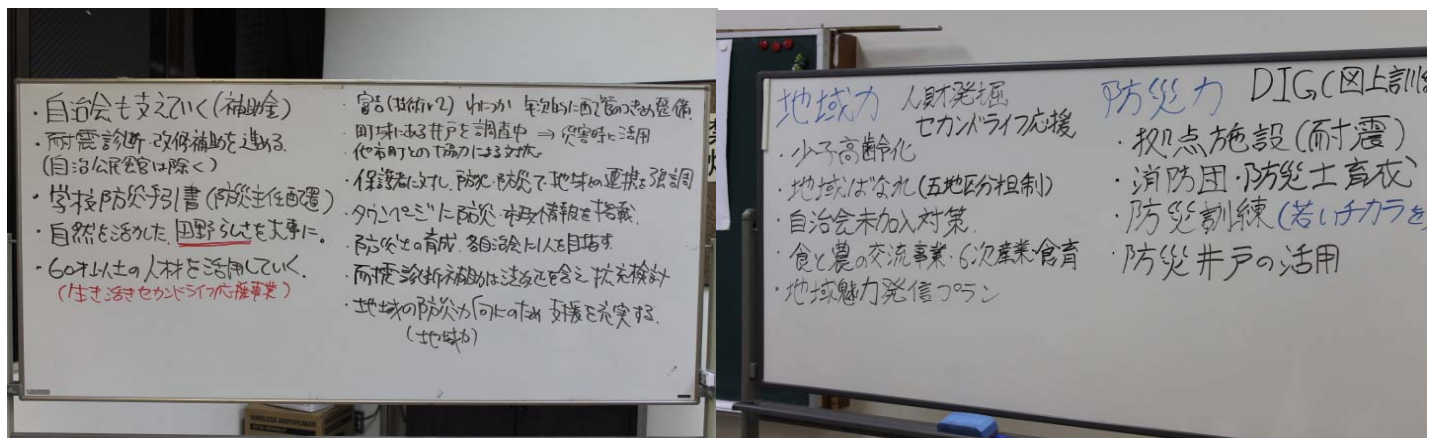 ・自治会も支えていく(補助金)
・耐震診断・改修補助を進める.
(自治公民館は除く)
・学校防災手引書(防災主任配置)
・自然を活かした、田野らしさを大事に。
・60才以上の人材を活用していく.
(生き活きセカンドライフ応援事業)
年次的に配て管のつきめ整備.
・町域にある井戸を調査中 ⇒災害時に活用
・他市町との協力による対応
・保護者に対し、防犯・防災で地域の連携を強調
・タウンページに防災・情報を掲載.
・防災士の育成、各自治会に1人を目指す.
・耐震診断補助は法改正を含え、拡充検討
・地域の防災力向上のため支援を充実する.
(地域力)
地域力 人財発掘
セカンドライフ応援
・少子高齢化
・地域ばなれ(五地区分担制)
・自治会未加入対策.
・食と農の交流事業・6次産業・食育
・地域魅力発信プラン
防災力 DIG(図上訓練
・拠点施設(耐震)
・消防団・防災士育成
・防災訓練(若いチカラを
・防災井戸の活用